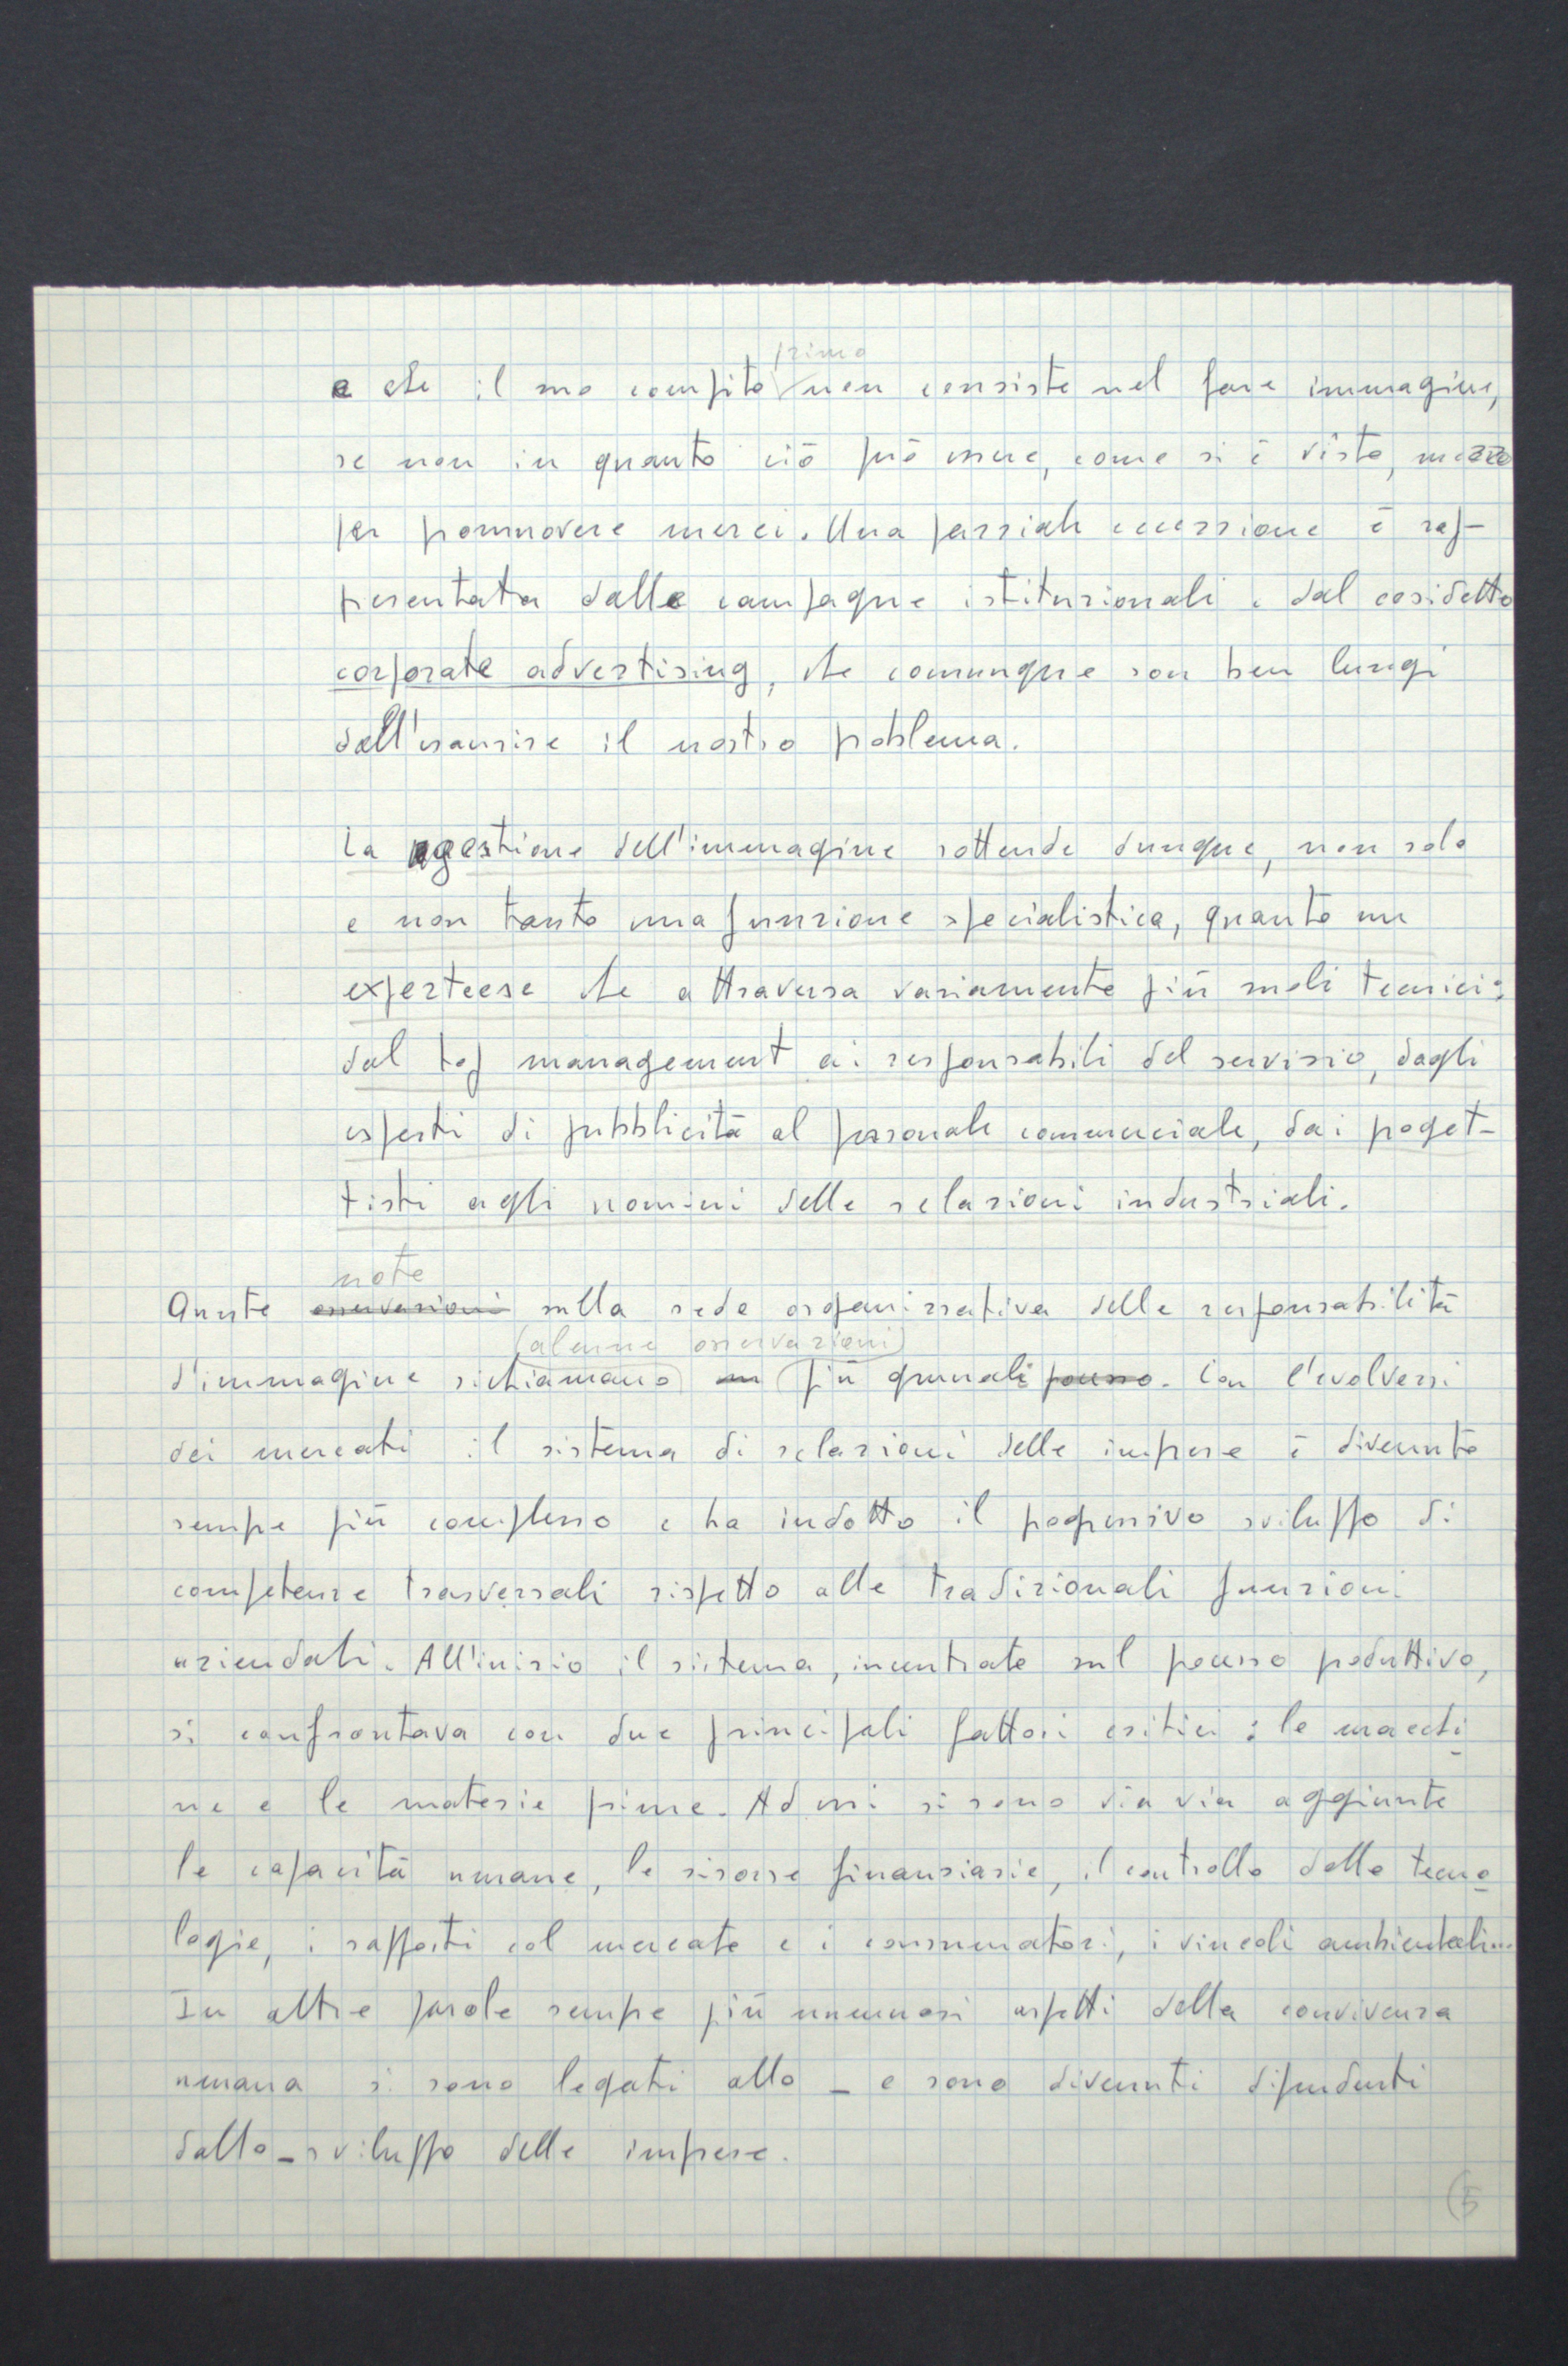 e che il suo compito primo non consiste nel fare immagine,
se non in quanto ciò può essere, come si è visto, mezzo
per promuovere merci. Una parziale eccezione è rap-
presentata dalle campagne istituzionali e dal cosidetto
corporate advertising, che comunque son ben lungi
dall'esaurire il nostro problema.
La gestione dell'immagine sottende dunque, non solo
e non tanto una funzione specialistica, quanto un
experteese che attraversa variamente più ruoli tecnici:
dal top management ai responsabili del servizio, dagli
esperti di pubblicità al personale commerciale, dai proget-
tisti agli uomini delle relazioni industriali.
note
Queste osservazioni sulla sede organizzativa delle responsabilità
(alcune osservazioni)
d'immagine richiamano un più generali processo. Con l'evolversi
dei mercati il sistema di relazioni delle imprese è divenuto
sempre più complesso e ha indotto il progressivo sviluppo di
competenze trasversali rispetto alle tradizionali funzioni
aziendali. All'inizio il sistema, incentrato sul processo produttivo,
si confrontava con due principali fattori critici: le macchi
ne e le materie prime. Ad essi si sono via via aggiunte
le capacità umane, le risorse finanziarie, il controllo delle tecno
logie, i rapporti col mercato e i consumatori, i vincoli ambientali...
In altre parole sempre più numerosi aspetti della convivenza
umana si sono legati allo - e sono divenuti dipendenti
dallo - sviluppo delle imprese.
(5